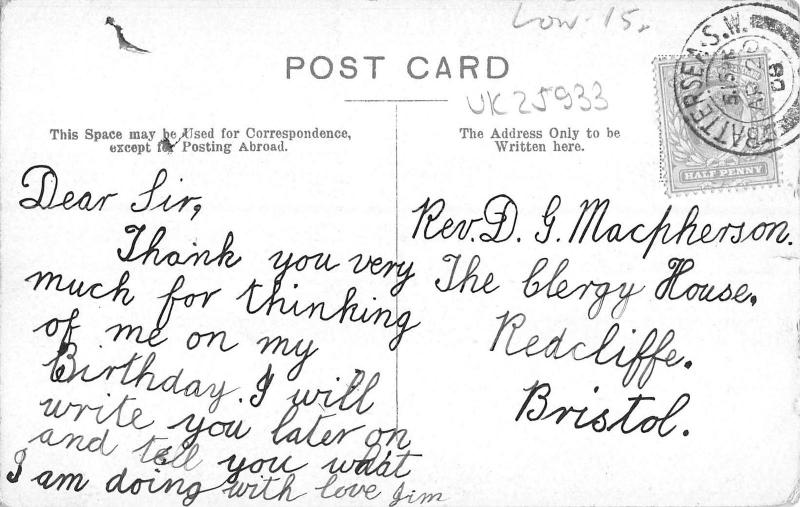 Low 15.
POST CARD
UK 25933
This Space may be Used for Correspondence,
except for Posting Abroad.
The Address Only to be
Written here.
BATTERSEA. S.W.
5.15 PM
AP 20
09
HALF PENNY
Dear Sir,
Thank you very
much for thinking
of me on my
Birthday. I will
write you later on
and tell you what
I am doing with love Jim
Rev. D. G. Macpherson.
The Clergy House.
Redcliffe.
Bristol.